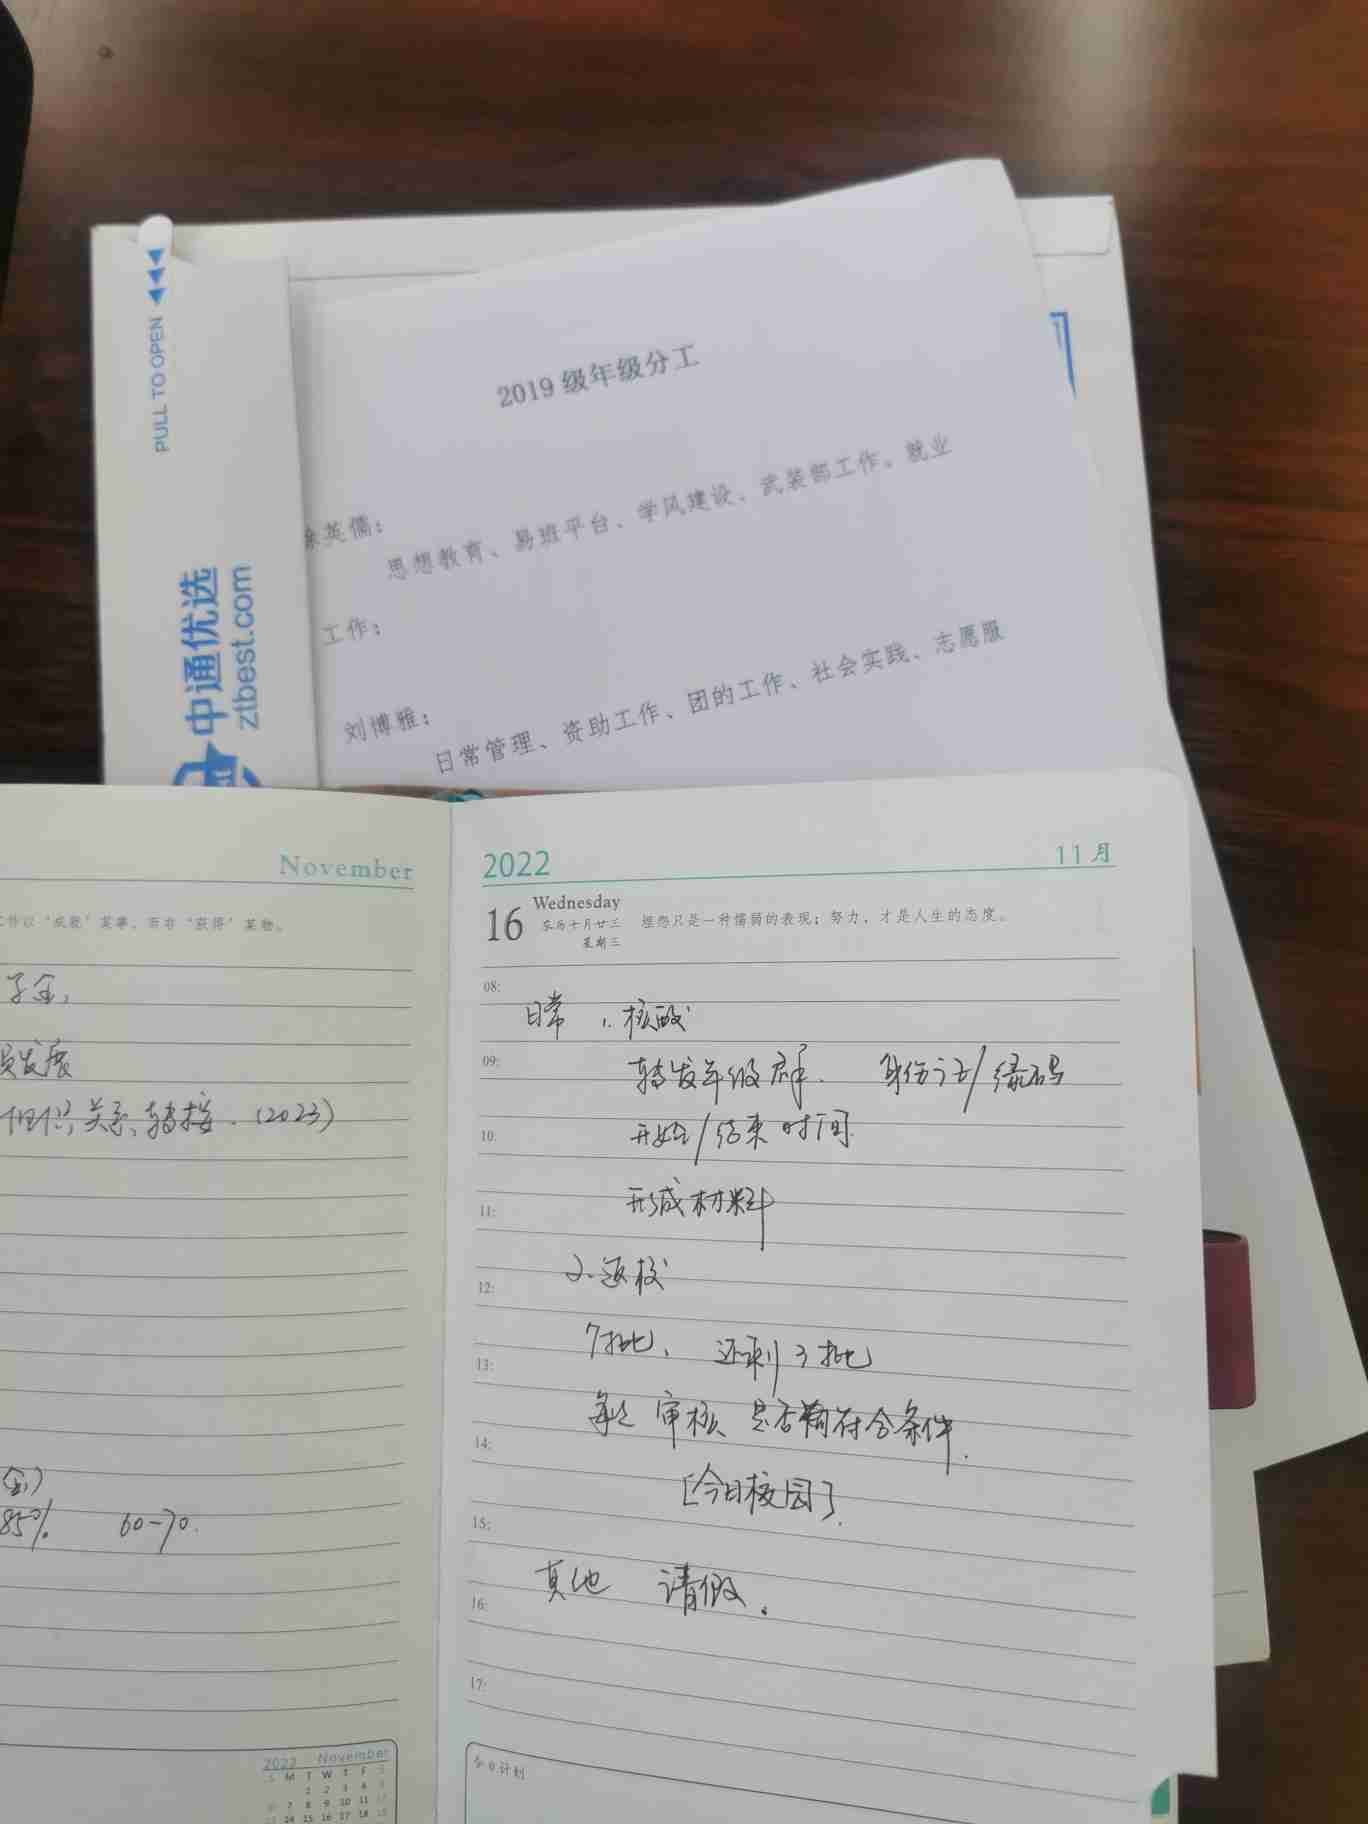 PULL TO OPEN
中通优选
ztbest.com
2019 级年级分工
英儒：
思想教育、易班平台、学风建设、武装部工作。就业
工作：
刘博雅：
日常管理、资助工作、团的工作、社会实践、志愿服
November
工作以“成就”某事，而非“获得”某物。
发展
关系转接.（2023）
85%  60-70.
2022 November
M T W T F S
1 2 3 4 5
7 8 9 10 11 12
14 15 16 17 18 19
2022 11月
16 Wednesday
农历十月廿三
星期三
埋怨只是一种懦弱的表现；努力，才是人生的态度。
08:
日常 1. 核酸
09:
转发年级群. 身份证/绿码
10:
开始/结束时间.
11:
形成材料
12:
2. 返校
7批、还剩3批
13:
审核 是否符合条件.
14:
[今日校园].
15:
其他 请假.
16:
17:
今日计划